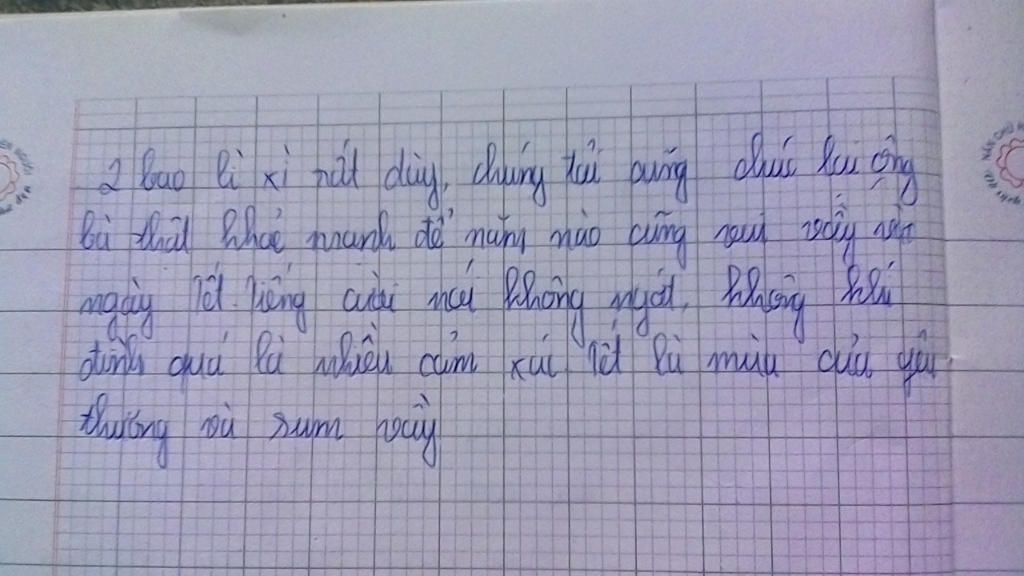 2 bao lì xì rất dày, chúng tôi cũng chúc lại ông
bà thật khoẻ mạnh để năm nào cũng vui vầy vào
ngày Tết. Tiếng cười nói không ngớt, không khí
đình quá là nhiều cảm xúc Tết là mùa của yêu
thương và sum vầy